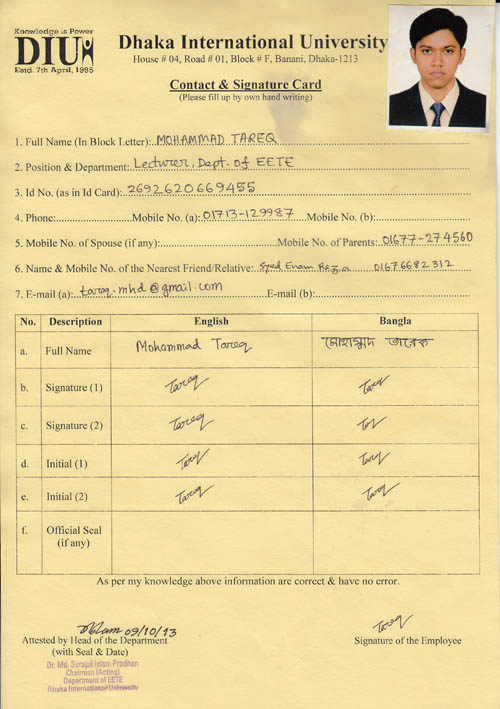 Knowledge is Power
DIU
Estd. 7th April, 1995
Dhaka International University
House # 04, Road # 01, Block # F, Banani, Dhaka-1213
Contact & Signature Card
(Please fill up by own hand writing)
1. Full Name (In Block Letter): MOHAMMAD TAREQ
2. Position & Department: Lecturer, Dept. of EETE
3. Id No. (as in Id Card): 2692620669455
4. Phone: Mobile No. (a): 01713-129987 Mobile No. (b):
5. Mobile No. of Spouse (if any): Mobile No. of Parents: 01677-274560
6. Name & Mobile No. of the Nearest Friend/Relative: Syed Enam Reza 01676682312
7. E-mail (a): tareq.mhd@gmail.com E-mail (b):
No. Description English Bangla
a. Full Name Mohammad Tareq মোহাম্মদ তারেক
b. Signature (1) Tareq Tareq
c. Signature (2) Tareq
d. Initial (1) Tareq Tareq
e. Initial (2) Tareq Tareq
f. Official Seal
(if any)
As per my knowledge above information are correct & have no error.
09/10/13 Tareq
Attested by Head of the Department Signature of the Employee
(with Seal & Date)
Dr. Md. Serajul Islam Prodhan
Chairman (Acting)
Department of EETE
Dhaka International University